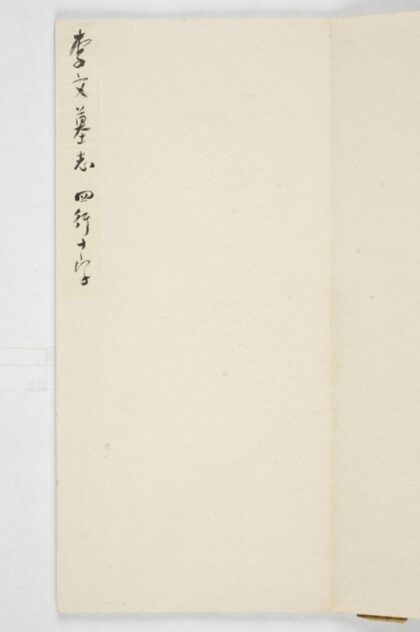 李文墓志 四行十字